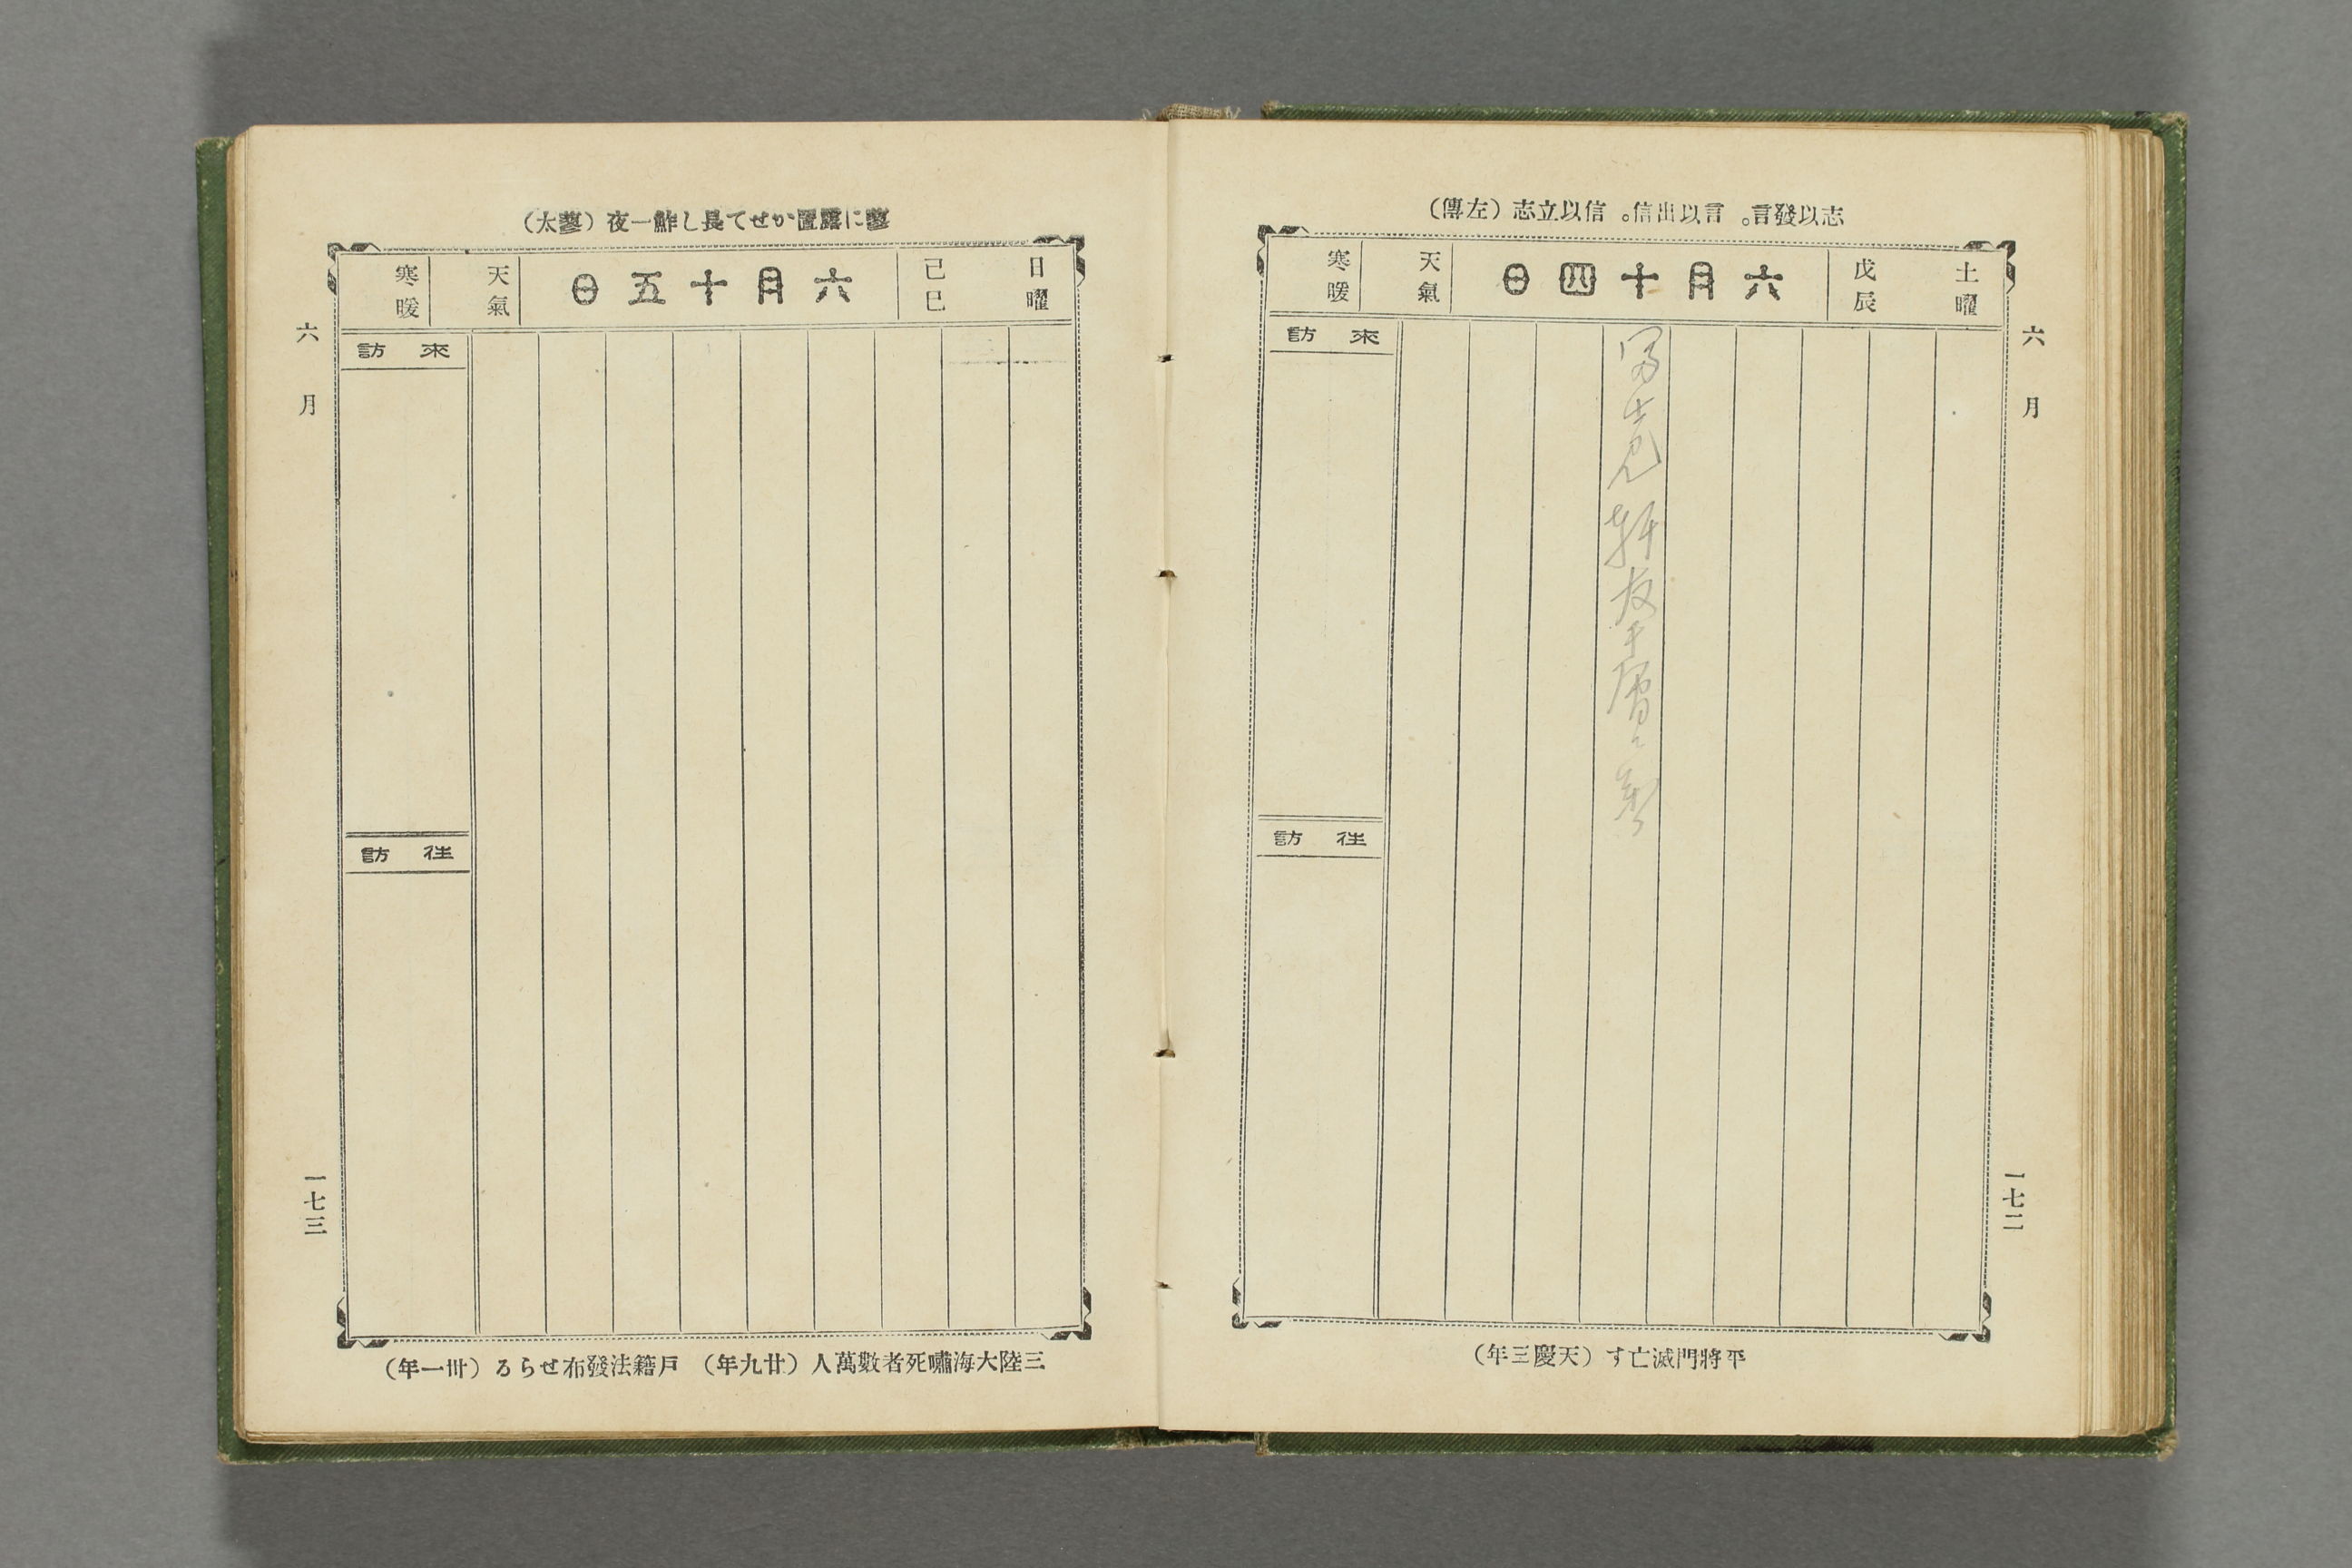 志以發言。言以出信。信以立志（左傳）
土曜
戊辰
六月十四日
天氣
寒暖
來訪
往訪
六月
一七二
平將門滅亡す（天慶三年）
蓼に露置かせて長し鮓一夜（蓼太）
日曜
己巳
六月十五日
天氣
寒暖
來訪
往訪
六月
一七三
三陸大海嘯死者數萬人（廿九年） 戸籍法發布せらる（卅一年）